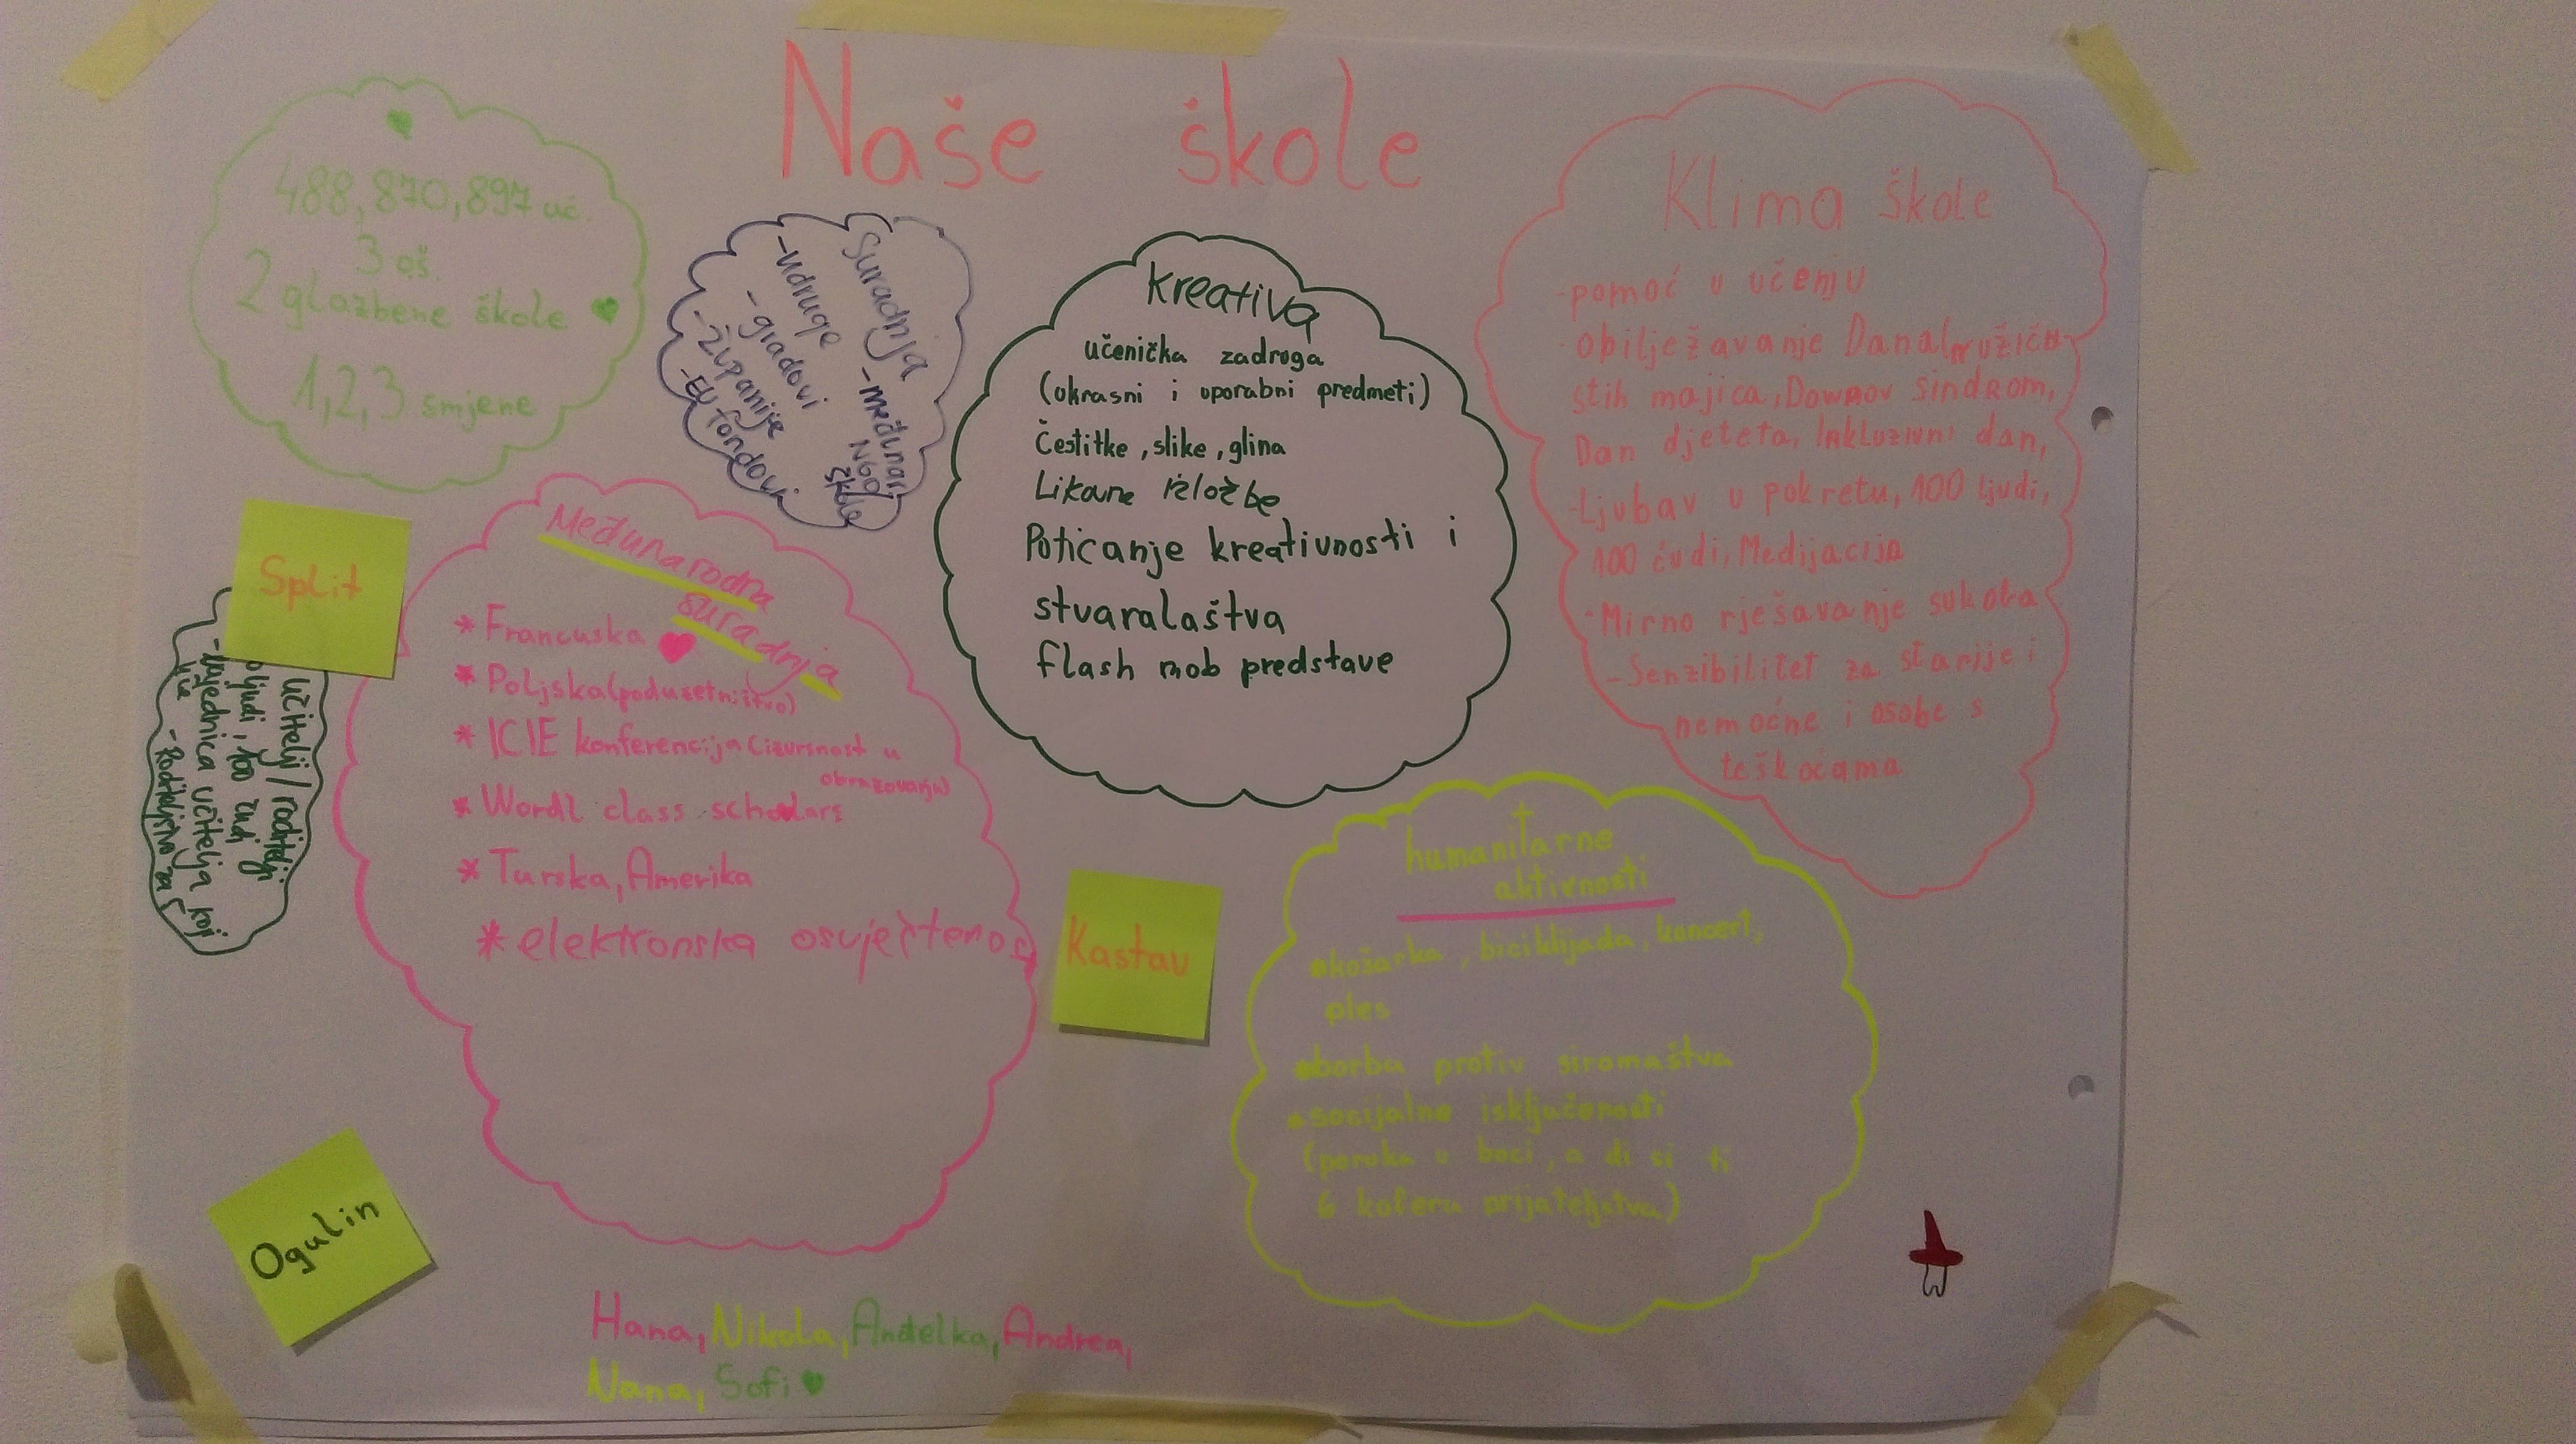 Naše škole
488, 870, 897 uč.
3 oš.
2 glazbene škole
1, 2, 3 smjene
Suradnja
-udruge
-gradovi
-županije
-EU fondovi
-međunar.
NGO
škole
Kreativa
učenička zadroga
(ukrasni i uporabni predmeti)
Čestitke, slike, glina
Likovne izložbe
Poticanje kreativnosti i
stvaralaštva
flash mob predstave
Klima škole
-pomoć u učenju
-obilježavanje Dana ružiča-
stih majica, Downov sindrom,
Dan djeteta, Inkluzivni dan,
-Ljubav u pokretu, 100 ljudi,
100 ćudi, Medijacija
-Mirno rješavanje sukoba
-Senzibilitet za starije i
nemoćne i osobe s
teškoćama
Split
učitelji/roditelji
ljudi, 100 ćudi
-zajednica učitelja koji
uče
-Roditeljstvo za 5
Međunarodna
suradnja
* Francuska
* Poljska (poduzetništvo)
* ICIE konferencija (izvrsnost u
obrazovanju)
* Wordl class scholars
* Turska, Amerika
* elektronska osvještenos
Kastav
humanitarne
aktivnosti
•košarka, biciklijada, koncert,
ples
•borba protiv siromaštva
•socijalne isključenosti
(poruka u boci, a di si ti
6 kofera prijateljstva)
Ogulin
Hana, Nikola, Anđelka, Andrea,
Nana, Sofi